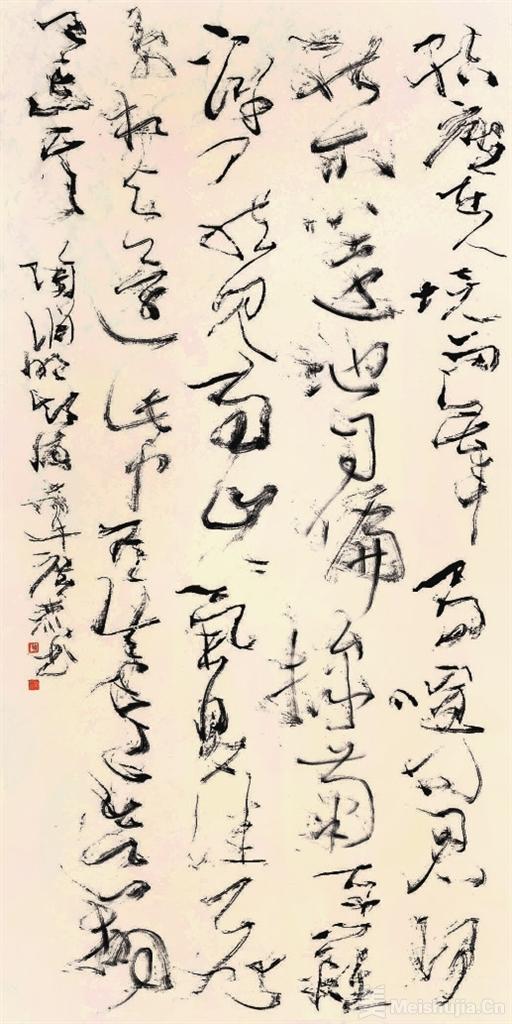 結廬在人境而無車馬喧問君何
能爾心遠地自偏採菊東籬
下悠然見南山々氣日夕佳飛
鳥相與還此中有真意欲辨
已忘言
陶淵明 書
Meishujia.Cn